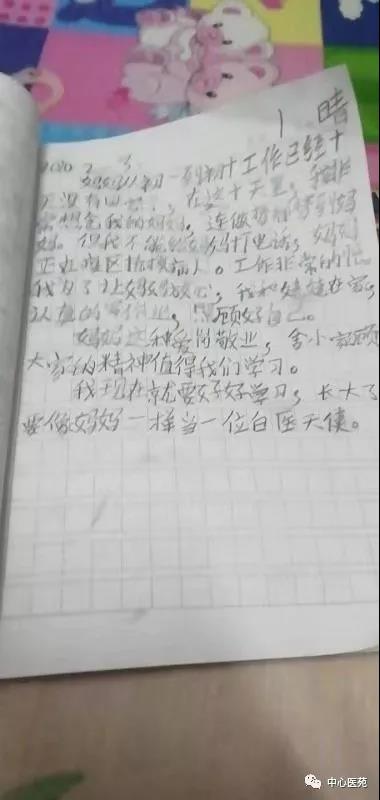 1 晴
2020 2 3
妈妈从初一到 工作已经十
天没有回 ，在这十天里，我非
常想念我的妈妈，连做梦都梦到妈
妈。但我不能给妈妈打电话，妈妈
正在 区 病人。工作非常的忙
我为了让妈妈放心，我和 在家
认真的写作业， 顾好自己。
妈妈这种爱岗敬业，舍小家顾
大家的精神值得我们学习。
我现在就要好好学习，长大了
要像妈妈一样当一位白医天使。
中心医苑